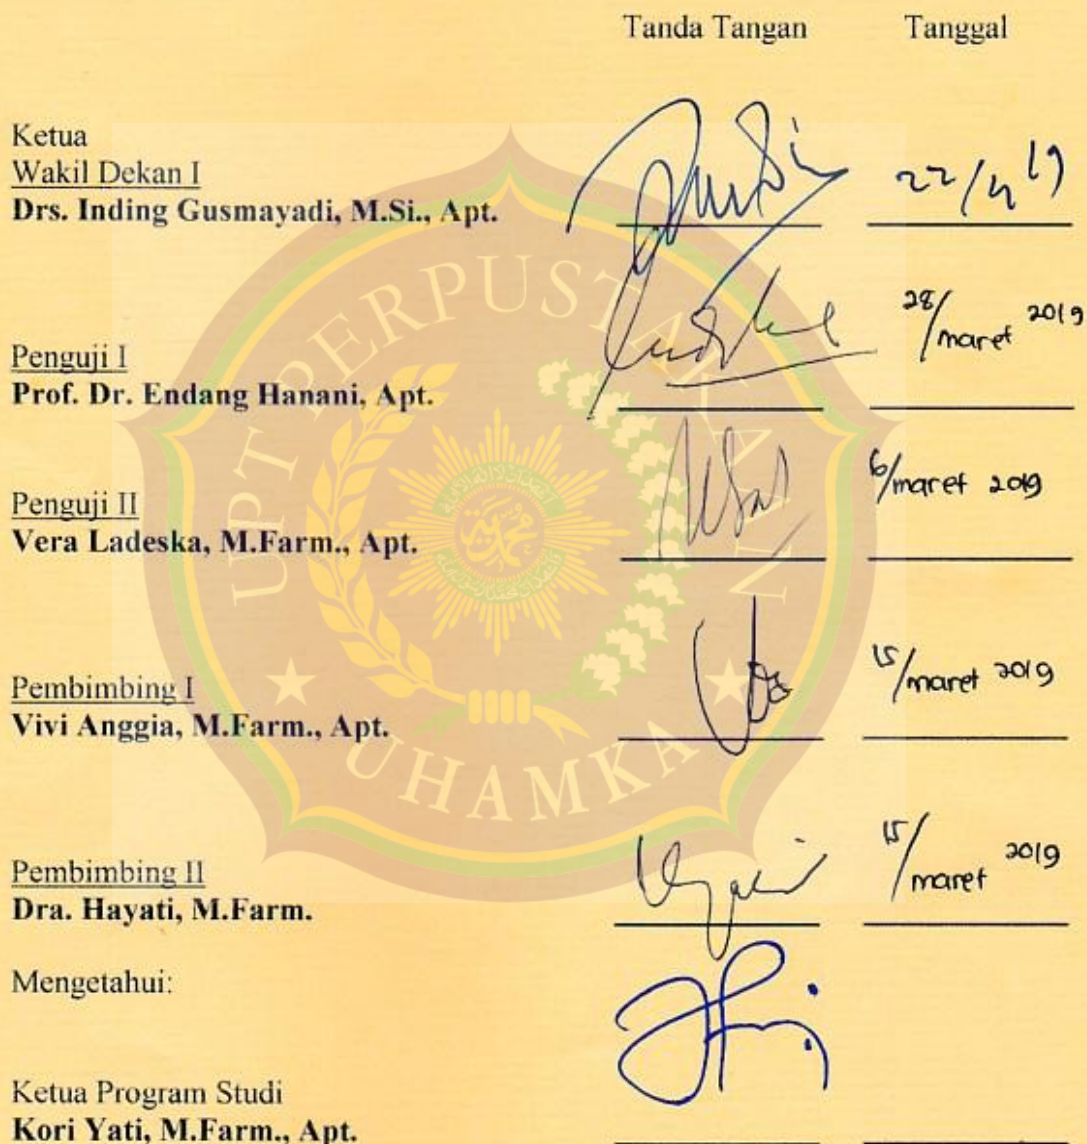 Tanda Tangan Tanggal
Ketua
Wakil Dekan I
Drs. Inding Gusmayadi, M.Si., Apt.
22/4 19
Penguji I
Prof. Dr. Endang Hanani, Apt.
28/maret 2019
Penguji II
Vera Ladeska, M.Farm., Apt.
6/maret 2019
Pembimbing I
Vivi Anggia, M.Farm., Apt.
15/maret 2019
Pembimbing II
Dra. Hayati, M.Farm.
15/maret 2019
Mengetahui:
Ketua Program Studi
Kori Yati, M.Farm., Apt.
UPT PERPUSTAKAAN
UHAMKA